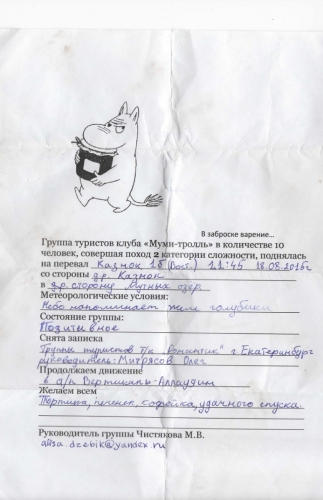 В заброске варение...
Группа туристов клуба «Муми-тролль» в количестве 10
человек, совершая поход 2 категории сложности, поднялась
на перевал Казнок 1б (Вост.) 11:45 18.08.2015г
со стороны др. Казнок
в др. сторону Мутных озер.
Метеорологические условия:
Небо напоминает жем голубики
Состояние группы:
Позитивное
Снята записка
Группы туристов т/к "Романтик" г. Екатеринбург
руководитель: Митрясов Олег
Продолжаем движение
в а/л Вертикаль-Аллаудин
Желаем всем
Тортика, печенек, кофейка, удачного спуска.
Руководитель группы Чистякова М.В.
alisa.dzebik@yandex.ru